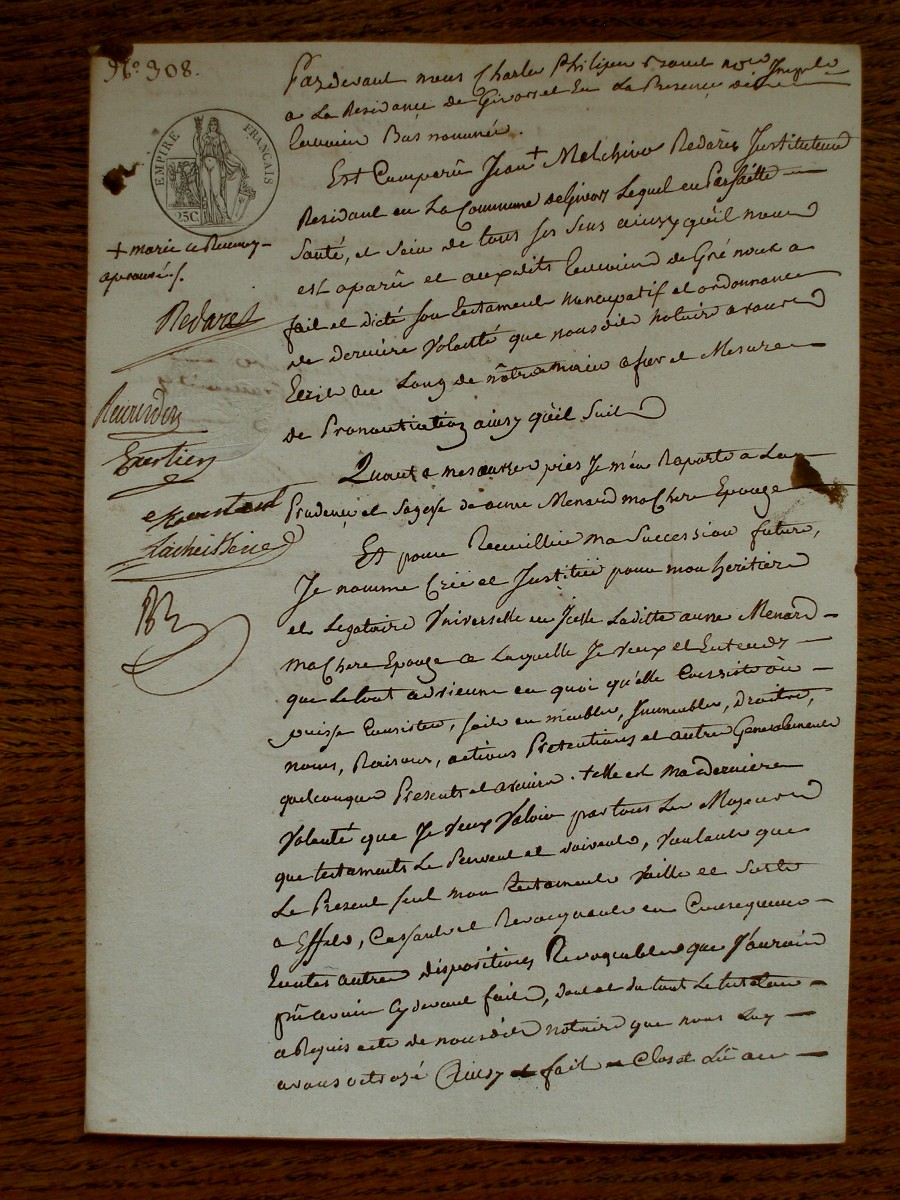 N.o 908.
Pardevant nous Charles Philipon notaire Imperial
a La Residance de Givors et En La Presence des
temoins Bas nommés.
EMPIRE FRANÇAIS
25C.
Est Comparû Jean + Melchior Redarès Instituteur
Residant en La Commune de Givors Lequel en Parfaitte
Santé, et Sein de tous ses Sens ainsy qu'il nous
+ marie ce Renvoy
aprouvé /.
est aparû et auxdits temoins de Gré nous a
fait et dicté son testament nuncupatif et ordonnance
Redares
de derniere Volonté que nousdit notaire avons
Ecrit au Long de nôtre main a fur et Mesure
de Prononciation ainsy qu'il Suit
Quant a mes œuvres pies Je m'en Raporte a La
Prudence et Sagesse de anne Menard ma Chere Epouze
Et pour Recueillir ma Succession future,
Je nomme Créé et Institüe pour mon heritiere
et Legataire Universelle en Icelle Laditte anne Menard
ma Chere Epouze a Laquelle Je veux et Entends
que Le tout advienne en quoi qu'elle Consiste ou
puisse Consister, soit en meubles, Immeubles, droits,
noms, Raisons, actions Pretentions et autres Generalement
quelconques Presents et avenir. telle est ma derniere
Volonté que Je veux Valoir par tous Les Moyens
que testaments Le Peuvent et doivent, Voulant que
Le Present seul mon testament Vaille et Sorte
a Effets, Cassant et Revocquant en Consequence
toutes autres dispositions Revoquables que J'aurois
pû avoir cy devant fait, dont et du tout Le testateur
a Requis acte de nousdit notaire que nous Luy
avons octroyé Ainsy fait Clos et Lû au